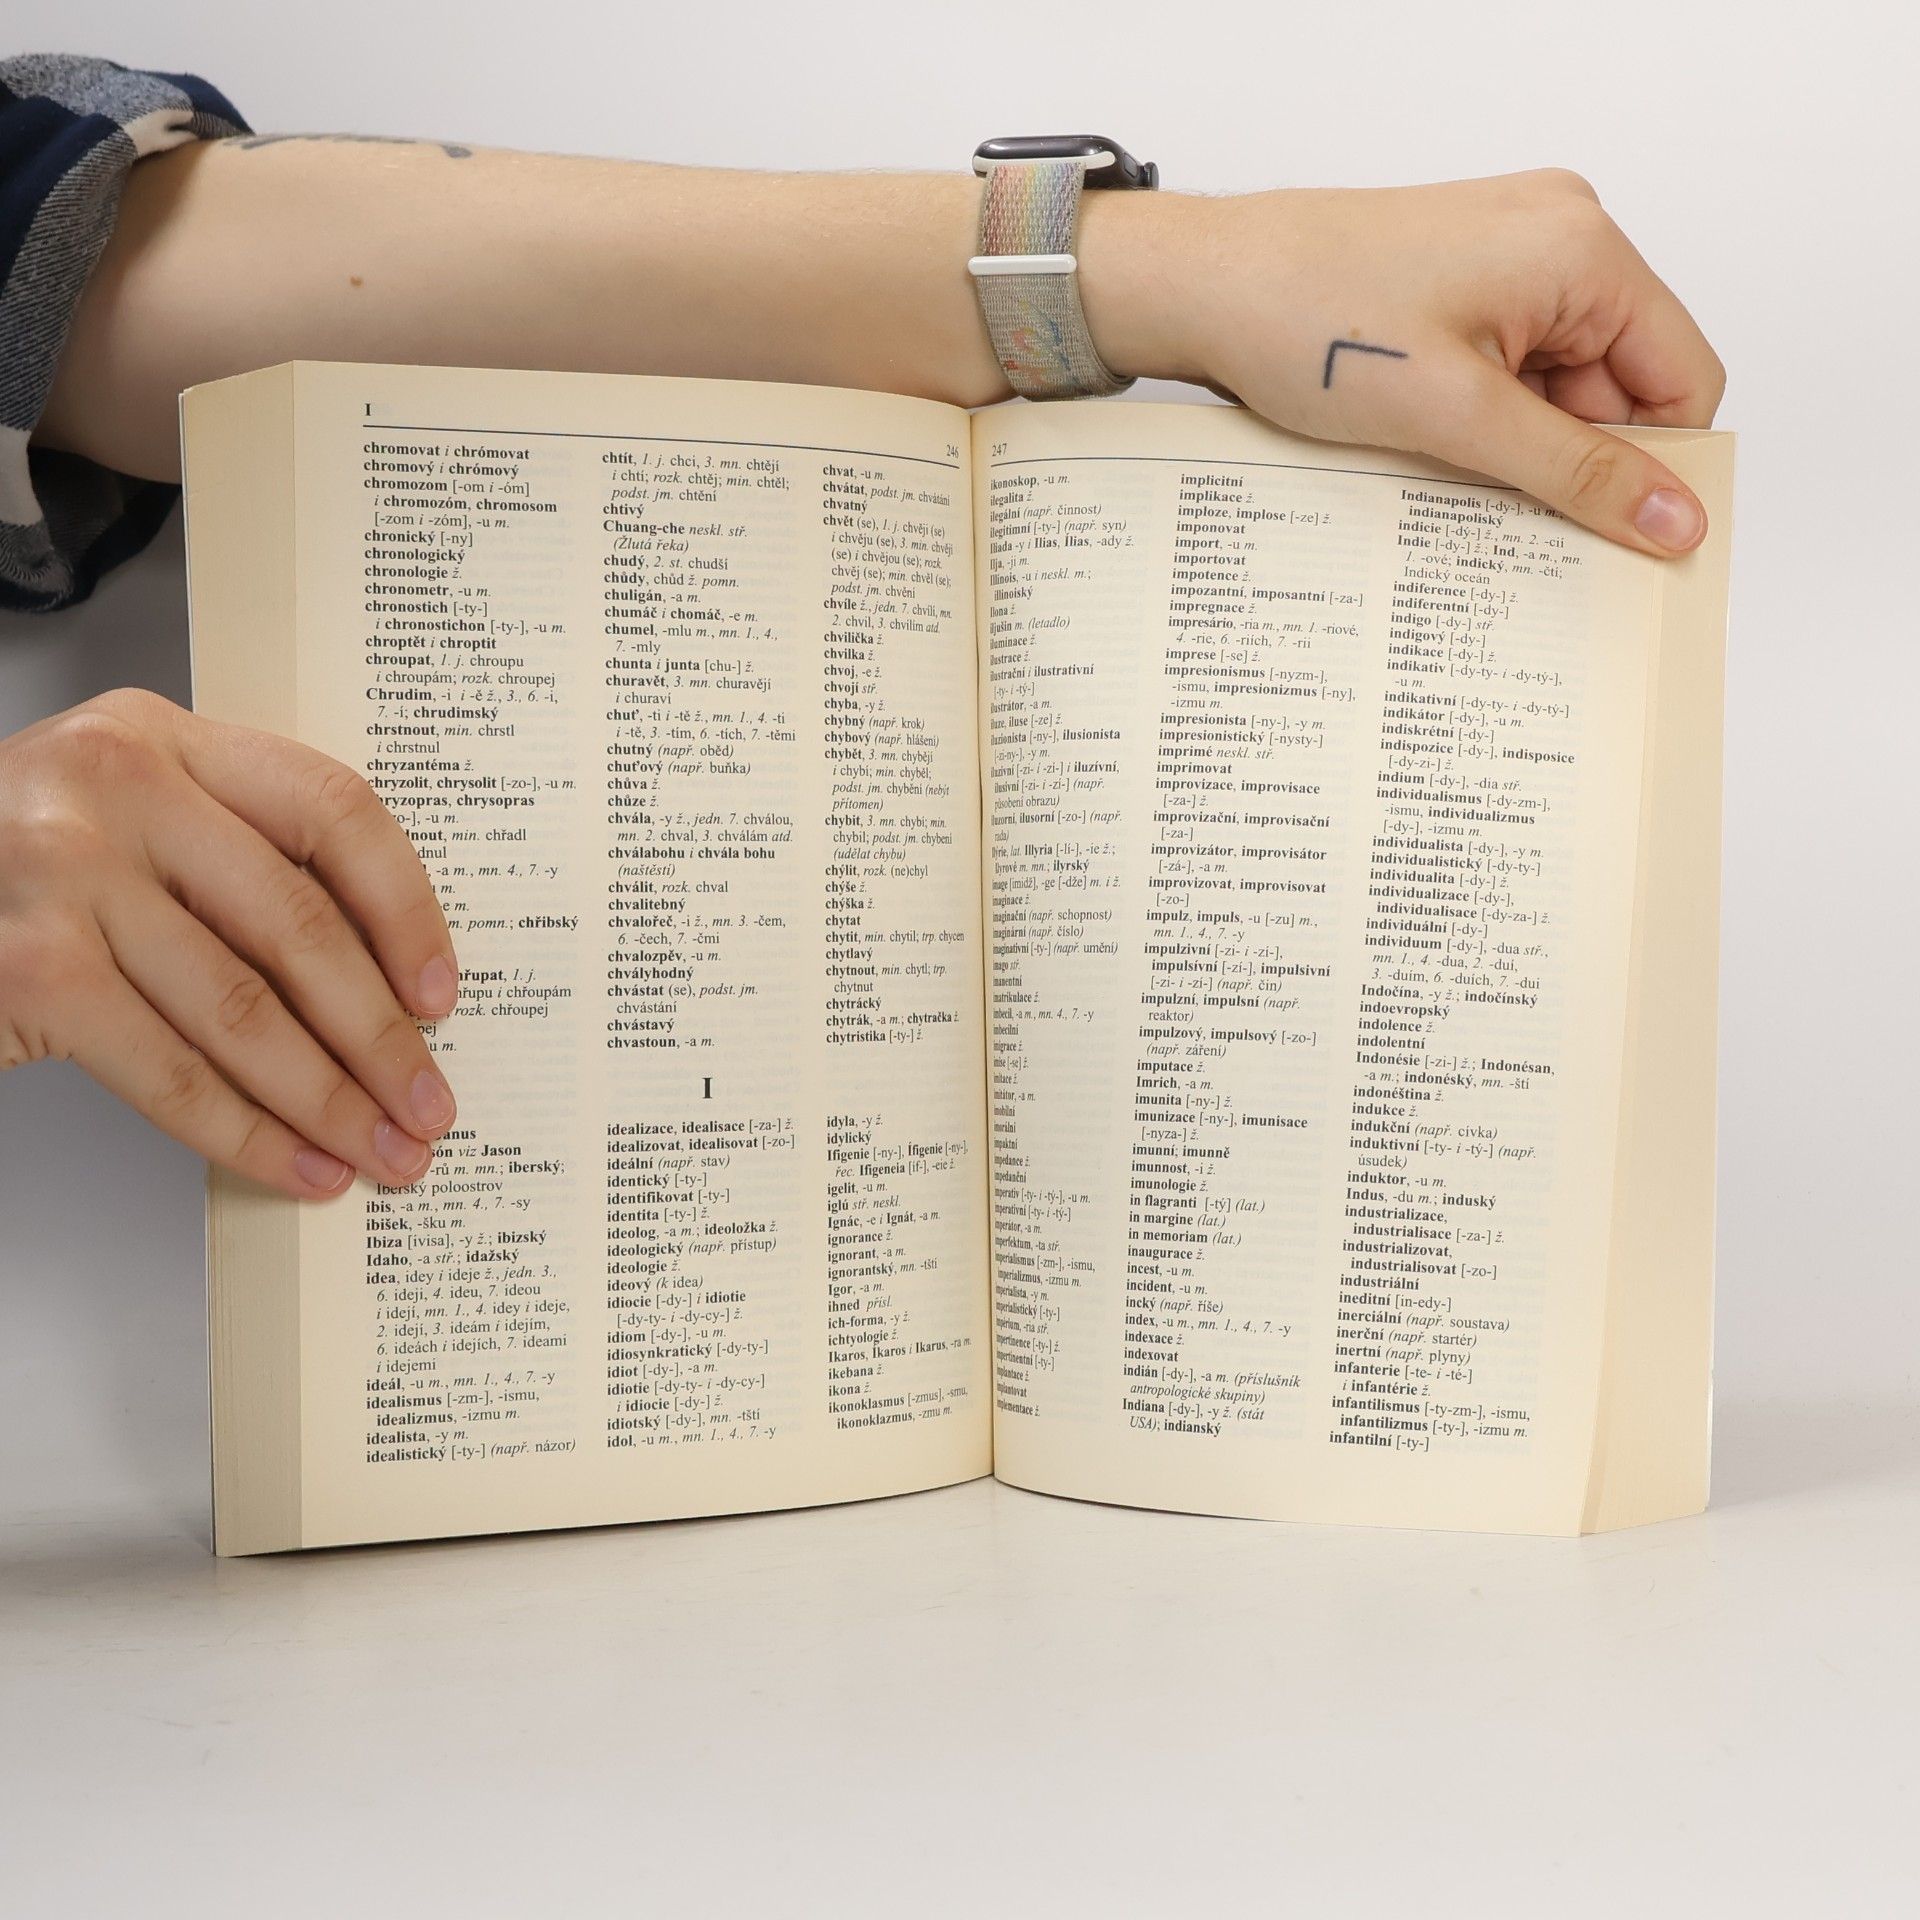 I
246
chromovat i chrómovat
chromový i chrómový
chromozom [-om i -óm]
i chromozóm, chromosom
[-zom i -zóm], -u m.
chronický [-ny]
chronologický
chronologie ž.
chronometr, -u m.
chronostich [-ty-]
i chronostichon [-ty-], -u m.
chroptět i chroptit
chroupat, 1. j. chroupu
i chroupám; rozk. chroupej
Chrudim, -i i -ě ž., 3., 6. -i,
7. -í; chrudimský
chrstnout, min. chrstl
i chrstnul
chryzantéma ž.
chryzolit, chrysolit [-zo-], -u m.
chryzopras, chrysopras
-u m.
min. chřadl
-a m., mn. 4., 7. -y
m.
m.
m. pomn.; chřibský
1. j.
i chřoupám
rozk. chřoupej
m.
viz Jason
-rů m. mn.; iberský;
Iberský poloostrov
ibis, -a m., mn. 4., 7. -sy
ibišek, -šku m.
Ibiza [ívisa], -y ž.; ibizský
Idaho, -a stř.; idažský
idea, idey i ideje ž., jedn. 3.,
6. ideji, 4. ideu, 7. ideou
i idejí, mn. 1., 4. idey i ideje,
2. idejí, 3. ideám i idejím,
6. ideách i idejích, 7. ideami
i idejemi
ideál, -u m., mn. 1., 4., 7. -y
idealismus [-zm-], -ismu,
idealizmus, -izmu m.
idealista, -y m.
idealistický [-ty-] (např. názor)
chtít, 1. j. chci, 3. mn. chtějí
i chtí; rozk. chtěj; min. chtěl;
podst. jm. chtění
chtivý
Chuang-che neskl. stř.
(Žlutá řeka)
chudý, 2. st. chudší
chůdy, chůd ž. pomn.
chuligán, -a m.
chumáč i chomáč, -e m.
chumel, -mlu m., mn. 1., 4.,
7. -mly
chunta i junta [chu-] ž.
churavět, 3. mn. churavějí
i churaví
chuť, -ti i -tě ž., mn. 1., 4. -ti
i -tě, 3. -tím, 6. -tích, 7. -těmi
chutný (např. oběd)
chuťový (např. buňka)
chůva ž.
chůze ž.
chvála, -y ž., jedn. 7. chválou,
mn. 2. chval, 3. chválám atd.
chválabohu i chvála bohu
(naštěstí)
chválit, rozk. chval
chvalitebný
chvalořeč, -i ž., mn. 3. -čem,
6. -čech, 7. -čmi
chvalozpěv, -u m.
chvályhodný
chvástat (se), podst. jm.
chvástání
chvástavý
chvastoun, -a m.
I
idealizace, idealisace [-za-] ž.
idealizovat, idealisovat [-zo-]
ideální (např. stav)
identický [-ty-]
identifikovat [-ty-]
identita [-ty-] ž.
ideolog, -a m.; ideoložka ž.
ideologický (např. přístup)
ideologie ž.
ideový (k idea)
idiocie [-dy-] i idiotie
[-dy-ty- i -dy-cy-] ž.
idiom [-dy-], -u m.
idiosynkratický [-dy-ty-]
idiot [-dy-], -a m.
idiotie [-dy-ty- i -dy-cy-]
i idiocie [-dy-] ž.
idiotský [-dy-], mn. -tští
idol, -u m., mn. 1., 4., 7. -y
chvat, -u m.
chvátat, podst. jm. chvátání
chvatný
chvět (se), 1. j. chvěji (se)
i chvěju (se), 3. mn. chvějí
(se) i chvějou (se); rozk.
chvěj (se); min. chvěl (se);
podst. jm. chvění
chvíle ž., jedn. 7. chvílí, mn.
2. chvil, 3. chvílím atd.
chvilička ž.
chvilka ž.
chvoj, -e ž.
chvojí stř.
chyba, -y ž.
chybný (např. krok)
chybový (např. hlášení)
chybět, 3. mn. chybějí
i chybí; min. chyběl;
podst. jm. chybění (nebýt
přítomen)
chybit, 3. mn. chybí; min.
chybil; podst. jm. chybení
(udělat chybu)
chýlit, rozk. (ne)chyl
chýše ž.
chýška ž.
chytat
chytit, min. chytil; trp. chycen
chytlavý
chytnout, min. chytl; trp.
chytnut
chytrácký
chytrák, -a m.; chytračka ž.
chytristika [-ty-] ž.
idyla, -y ž.
idylický
Ifigenie [-ny-], Ífigenie [-ny-],
řec. Ifigeneia [if-], -eie ž.
igelit, -u m.
iglú stř. neskl.
Ignác, -e i Ignát, -a m.
ignorance ž.
ignorant, -a m.
ignorantský, mn. -tští
Igor, -a m.
ihned přísl.
ich-forma, -y ž.
ichtyologie ž.
Ikaros, Íkaros i Ikarus, -ra m.
ikebana ž.
ikona ž.
ikonoklasmus [-zmus], -smu,
ikonoklazmus, -zmu m.
247
ikonoskop, -u m.
ilegalita ž.
ilegální (např. činnost)
ilegitimní [-ty-] (např. syn)
Iliada -y i Ilias, Ílias, -ady ž.
Ilja, -ji m.
Illinois, -u i neskl. m.;
illinoiský
Ilona ž.
iljušin m. (letadlo)
iluminace ž.
ilustrace ž.
ilustrační i ilustrativní
[-ty- i -tý-]
ilustrátor, -a m.
iluze, iluse [-ze] ž.
iluzionista [-ny-], ilusionista
[-zi-ny-], -y m.
iluzivní [-zi- i -zí-] i iluzívní,
ilusivní [-zi- i -zí-] (např.
působení obrazu)
iluzorní, ilusorní [-zo-] (např.
rada)
Ilýrie, lat. Illyria [-lí-], -ie ž.;
Ilyrové m. mn.; ilyrský
image [imidž], -ge [-dže] m. i ž.
imaginace ž.
imaginační (např. schopnost)
imaginární (např. číslo)
imaginativní [-ty-] (např. umění)
imago stř.
imanentní
imatrikulace ž.
imbecil, -a m., mn. 4., 7. -y
imbecilní
imigrace ž.
imise [-se] ž.
imitace ž.
imitátor, -a m.
imobilní
imorální
impaktní
impedance ž.
impedanční
imperativ [-ty- i -tý-], -u m.
imperativní [-ty- i -tý-]
imperátor, -a m.
imperfektum, -ta stř.
imperialismus [-zm-], -ismu,
imperializmus, -izmu m.
imperialista, -y m.
imperialistický [-ty-]
impérium, -ria stř.
impertinence [-ty-] ž.
impertinentní [-ty-]
implantace ž.
implantovat
implementace ž.
implicitní
implikace ž.
imploze, implose [-ze] ž.
imponovat
import, -u m.
importovat
impotence ž.
impozantní, imposantní [-za-]
impregnace ž.
impresário, -ria m., mn. 1. -riové,
4. -rie, 6. -riích, 7. -rii
imprese [-se] ž.
impresionismus [-nyzm-],
-ismu, impresionizmus [-ny],
-izmu m.
impresionista [-ny-], -y m.
impresionistický [-nysty-]
imprimé neskl. stř.
imprimovat
improvizace, improvisace
[-za-] ž.
improvizační, improvisační
[-za-]
improvizátor, improvisátor
[-zá-], -a m.
improvizovat, improvisovat
[-zo-]
impulz, impuls, -u [-zu] m.,
mn. 1., 4., 7. -y
impulzivní [-zi- i -zí-],
impulsívní [-zí-], impulsivní
[-zi- i -zí-] (např. čin)
impulzní, impulsní (např.
reaktor)
impulzový, impulsový [-zo-]
(např. záření)
imputace ž.
Imrich, -a m.
imunita [-ny-] ž.
imunizace [-ny-], imunisace
[-nyza-] ž.
imunní; imunně
imunnost, -i ž.
imunologie ž.
in flagranti [-tý] (lat.)
in margine (lat.)
in memoriam (lat.)
inaugurace ž.
incest, -u m.
incident, -u m.
incký (např. říše)
index, -u m., mn. 1., 4., 7. -y
indexace ž.
indexovat
indián [-dy-], -a m. (příslušník
antropologické skupiny)
Indiana [-dy-], -y ž. (stát
USA); indianský
Indianapolis [-dy-], -u m.;
indianapoliský
indicie [-dý-] ž., mn. 2. -cií
Indie [-dy-] ž.; Ind, -a m., mn.
1. -ové; indický, mn. -čtí;
Indický oceán
indiference [-dy-] ž.
indiferentní [-dy-]
indigo [-dy-] stř.
indigový [-dy-]
indikace [-dy-] ž.
indikativ [-dy-ty- i -dy-tý-],
-u m.
indikativní [-dy-ty- i -dy-tý-]
indikátor [-dy-], -u m.
indiskrétní [-dy-]
indispozice [-dy-], indisposice
[-dy-zi-] ž.
indium [-dy-], -dia stř.
individualismus [-dy-zm-],
-ismu, individualizmus
[-dy-], -izmu m.
individualista [-dy-], -y m.
individualistický [-dy-ty-]
individualita [-dy-] ž.
individualizace [-dy-],
individualisace [-dy-za-] ž.
individuální [-dy-]
individuum [-dy-], -dua stř.,
mn. 1., 4. -dua, 2. -duí,
3. -duím, 6. -duích, 7. -dui
Indočína, -y ž.; indočínský
indoevropský
indolence ž.
indolentní
Indonésie [-zi-] ž.; Indonésan,
-a m.; indonéský, mn. -ští
indonéština ž.
indukce ž.
indukční (např. cívka)
induktivní [-ty- i -tý-] (např.
úsudek)
induktor, -u m.
Indus, -du m.; induský
industrializace,
industrialisace [-za-] ž.
industrializovat,
industrialisovat [-zo-]
industriální
ineditní [in-edy-]
inerciální (např. soustava)
inerční (např. startér)
inertní (např. plyny)
infanterie [-te- i -té-]
i infantérie ž.
infantilismus [-ty-zm-], -ismu,
infantilizmus [-ty-], -izmu m.
infantilní [-ty-]